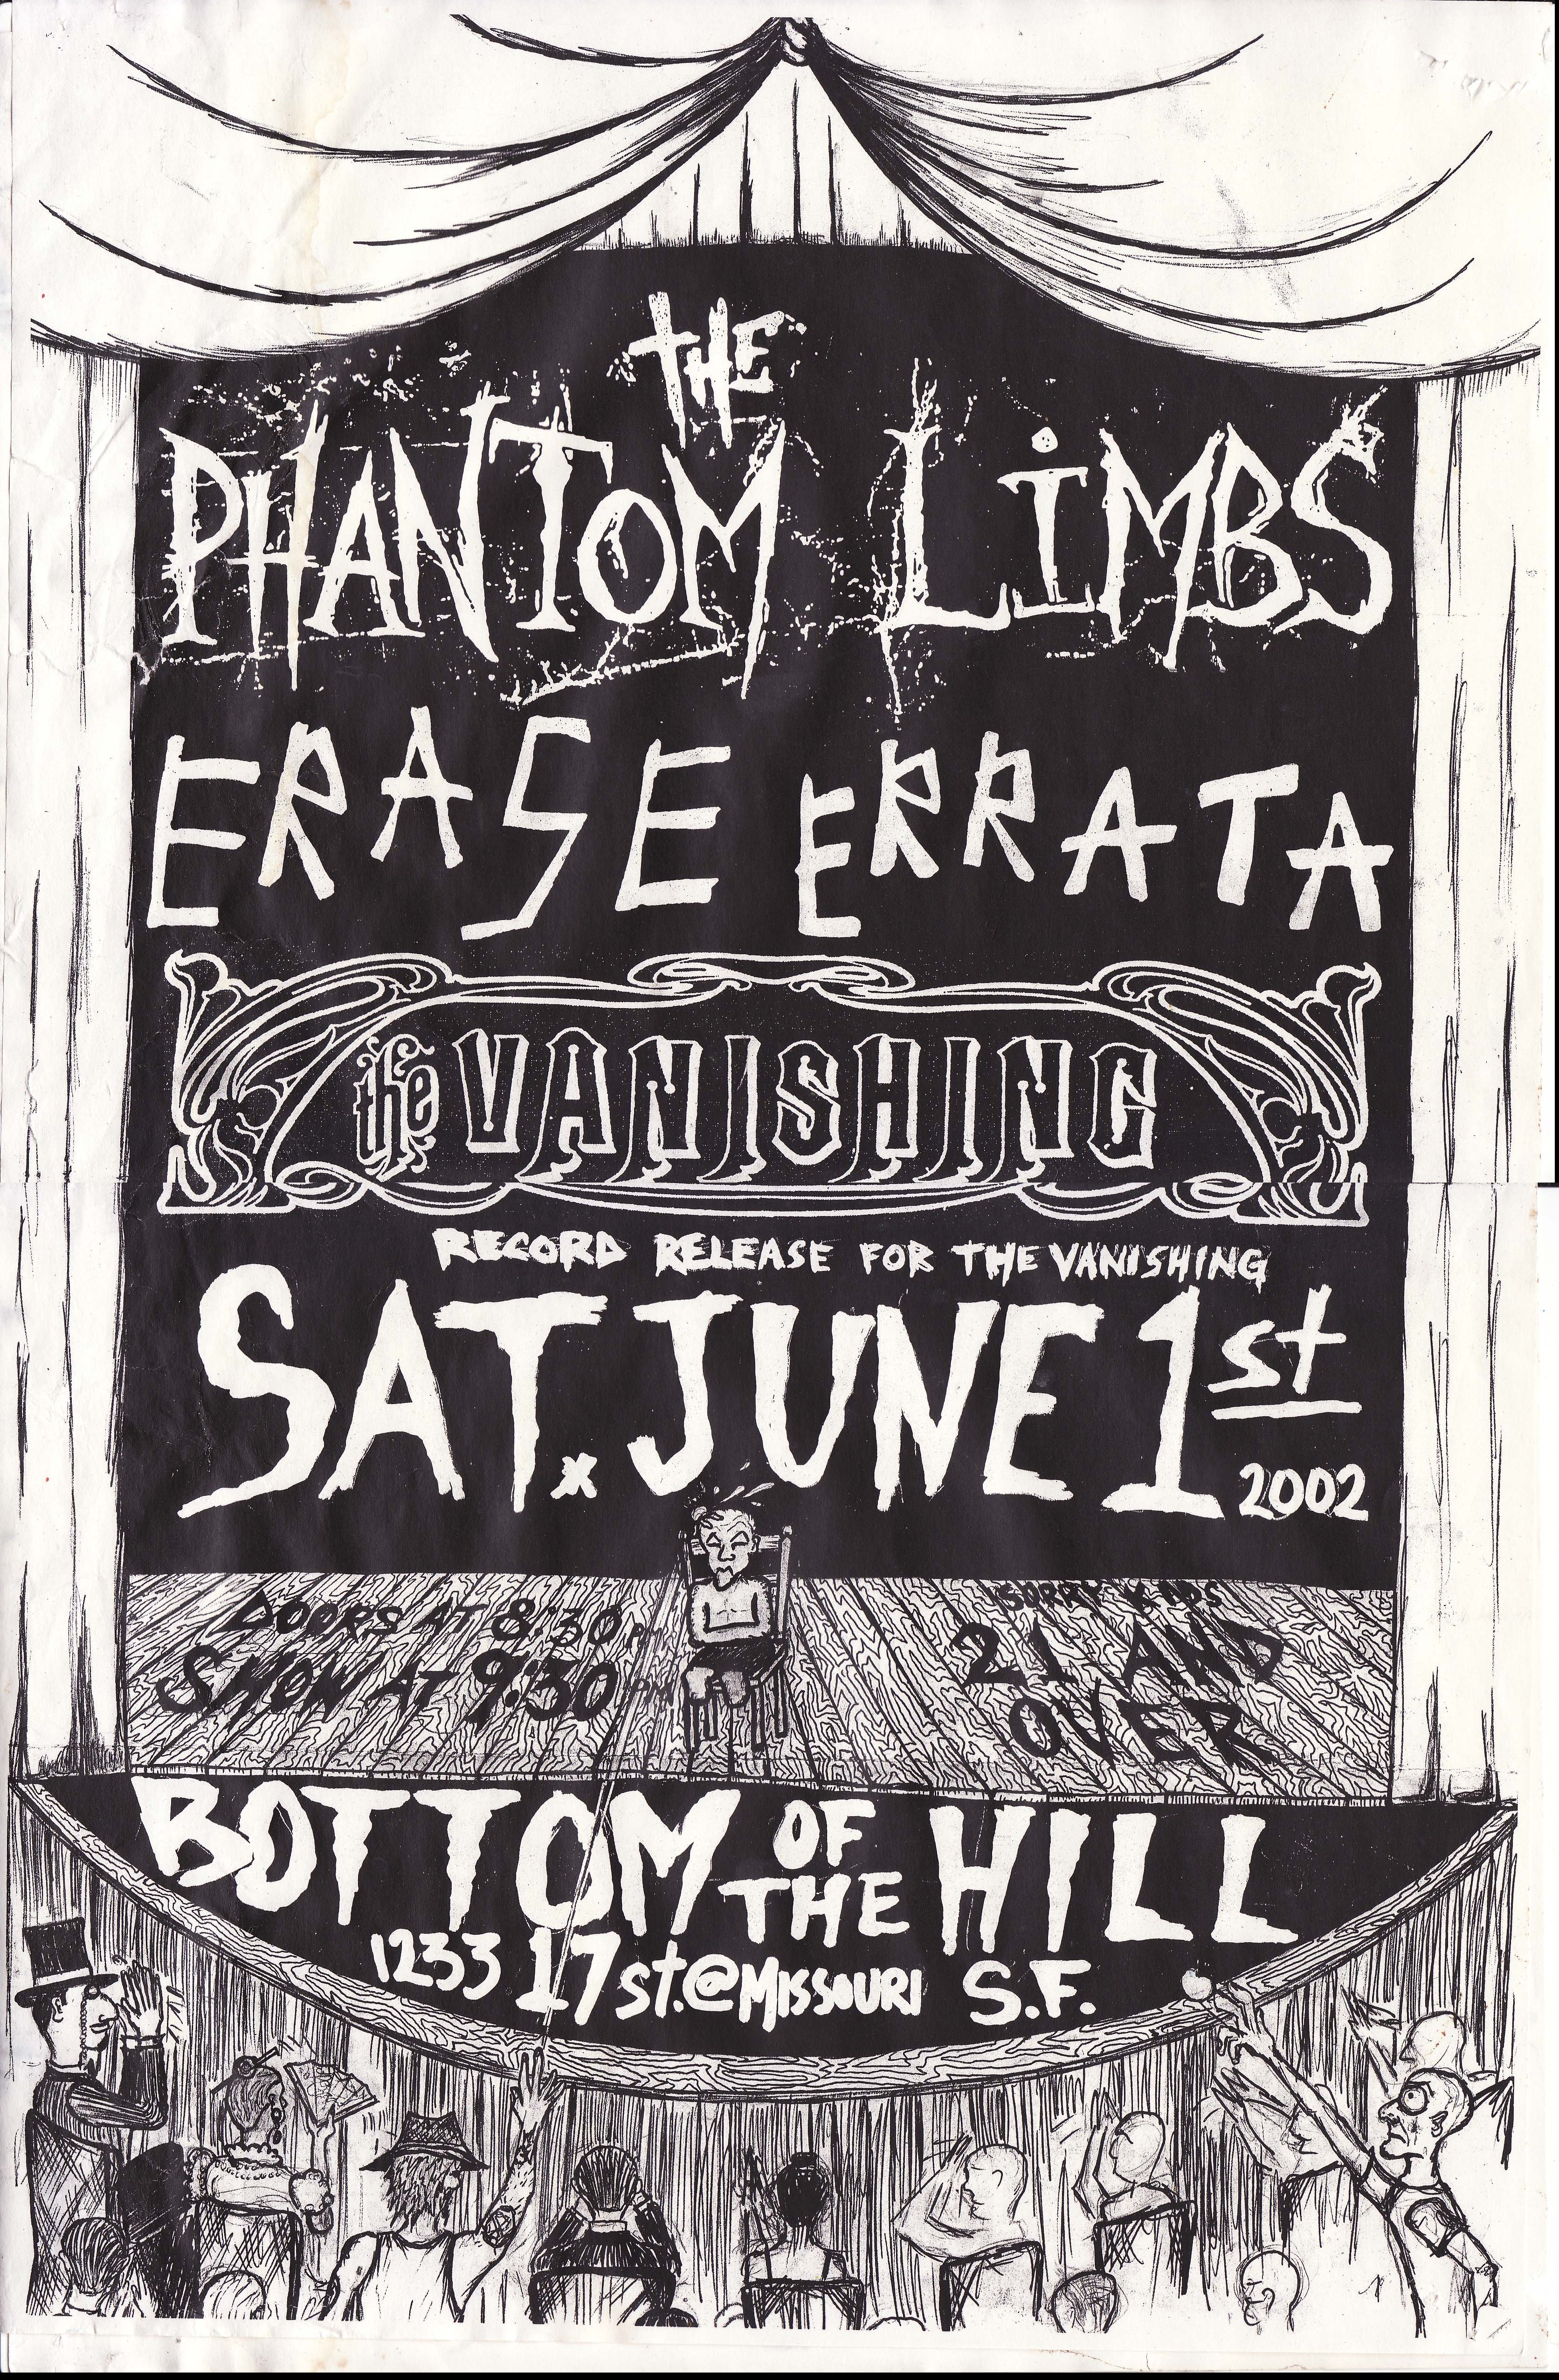 THE
PHANTOM LiMBS
ERASE ERRATA
the VANISHING
RECORD RELEASE FOR THE VANISHING
SAT. JUNE 1st
2002
DOORS AT 8:30 PM
SHOW AT 9:30 PM
SORRY KIDS
21 AND
OVER
BOTTOM OF THE HILL
1233 17 st.@MISSOURI S.F.